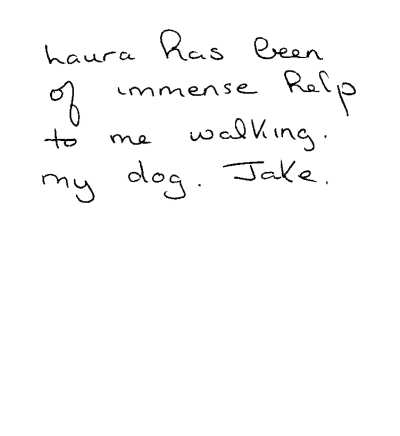 Laura has been
of immense help
to me walking.
my dog. Jake.